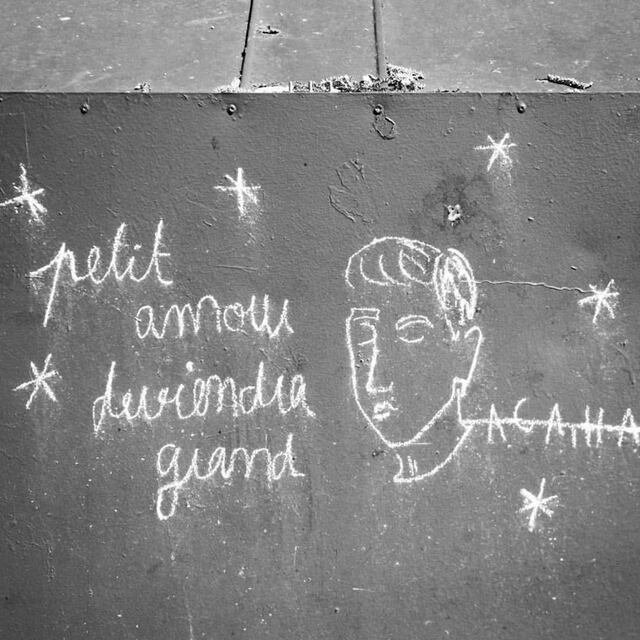 petit
amour
deviendra
grand